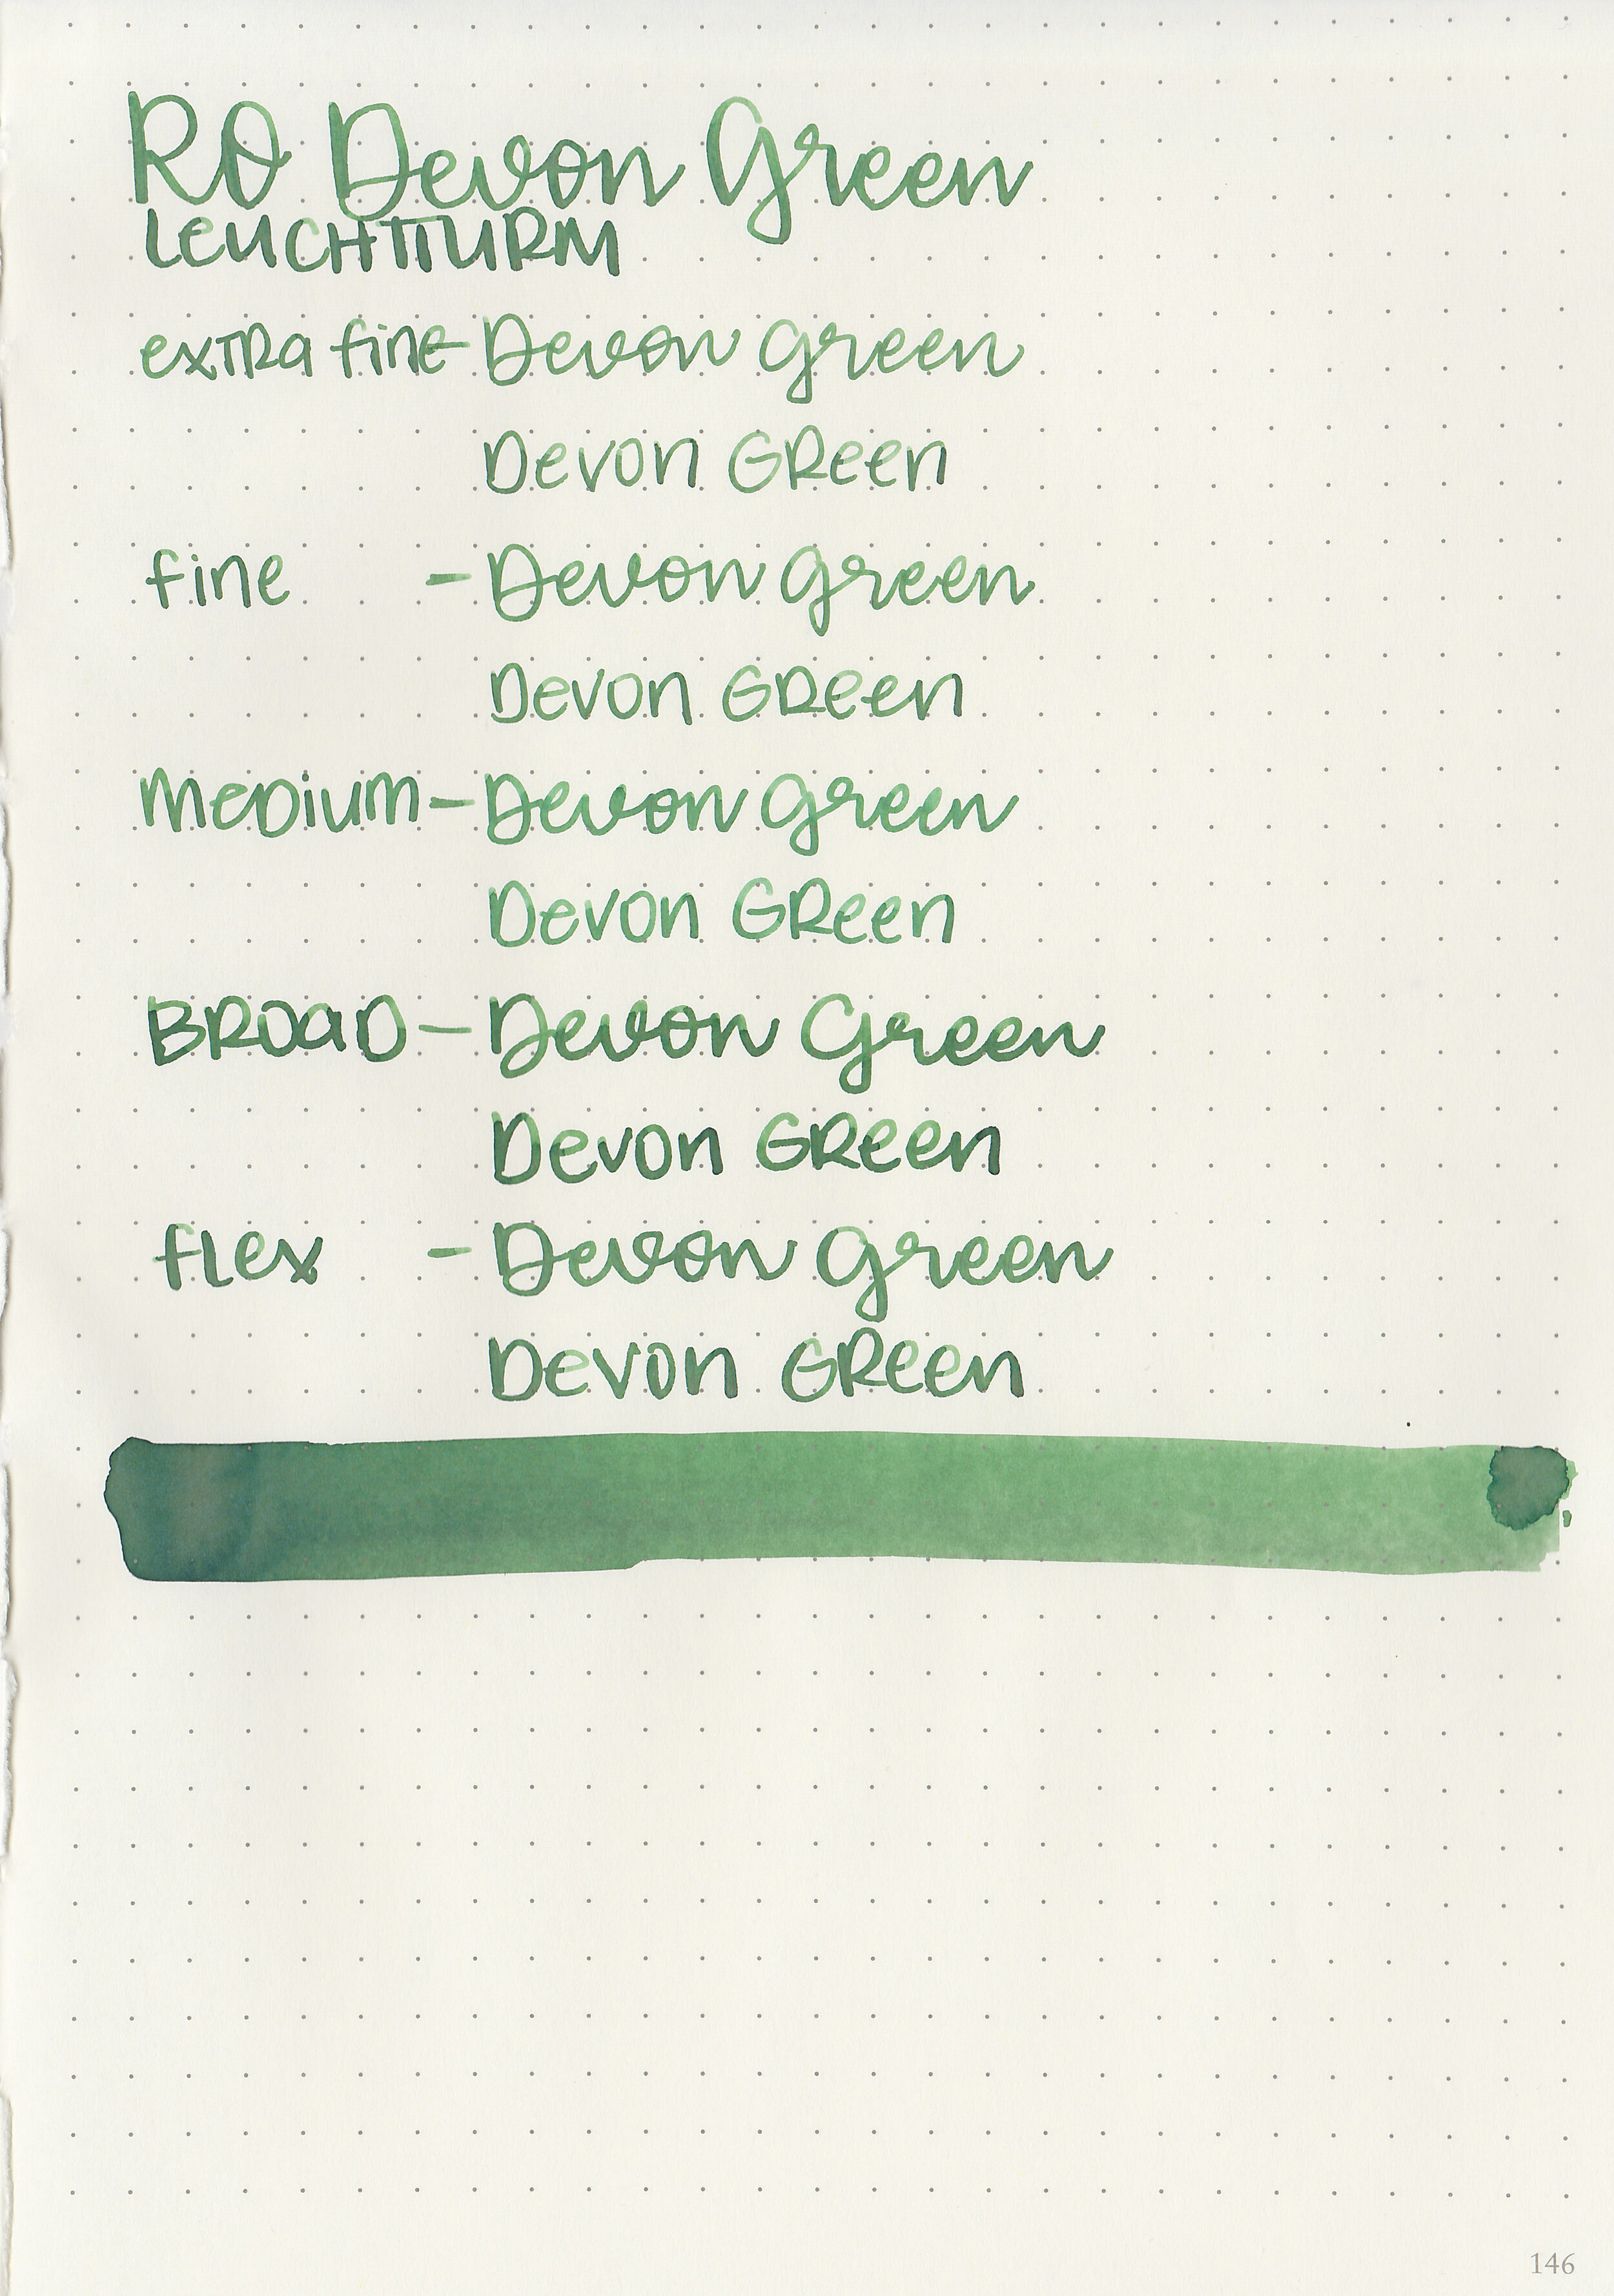 RO Devon Green
LEUCHTTURM
extRa fine - Devon Green
Devon GReen
fine - Devon Green
Devon GReen
MeDium - Devon Green
Devon GReen
BROaD - Devon Green
Devon GReen
flex - Devon Green
Devon GReen
146